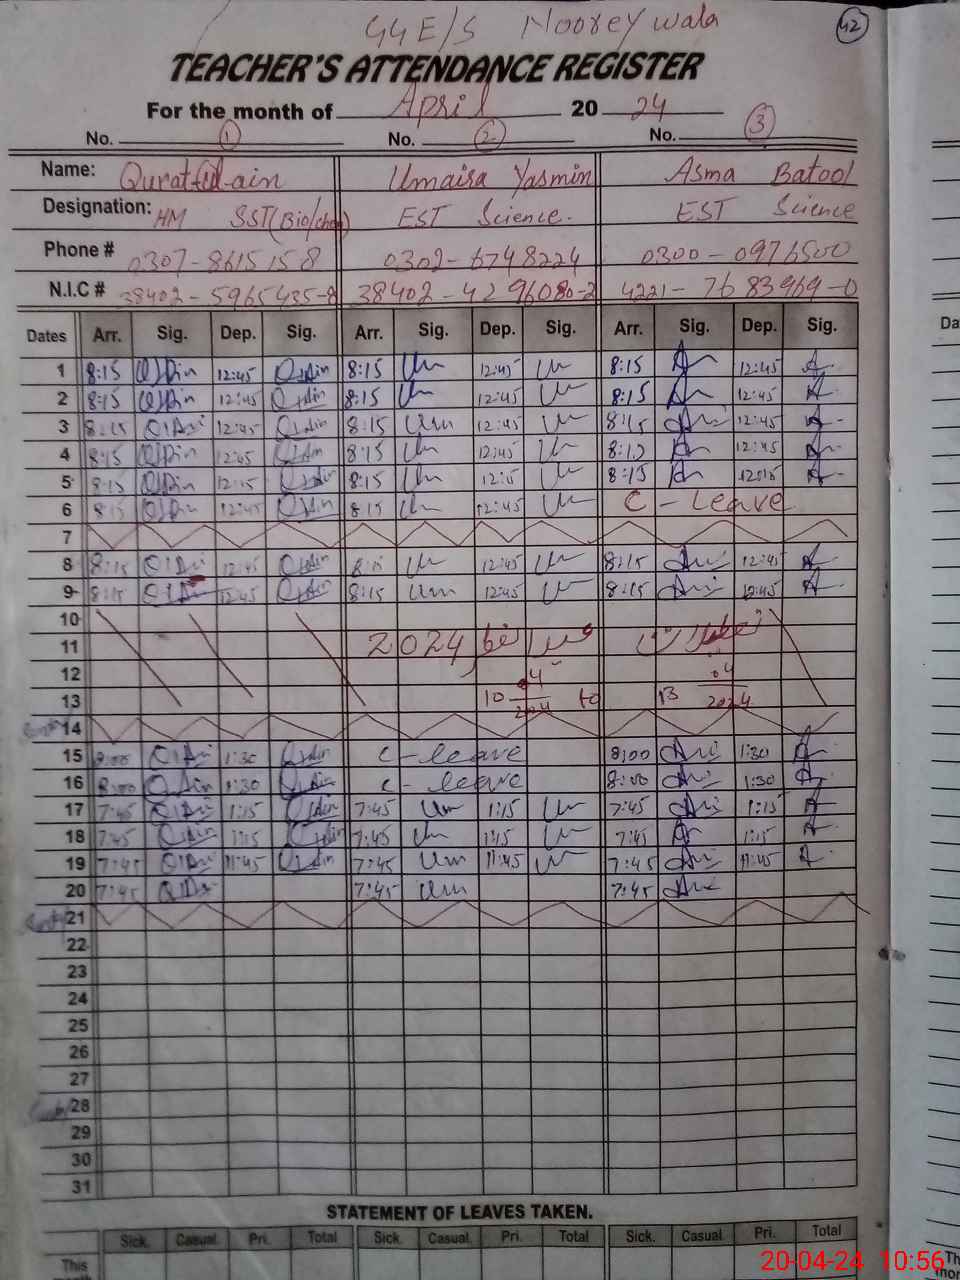 GGE/S Noorey wala
42
TEACHER'S ATTENDANCE REGISTER
For the month of April 20 24
No. 1 No. 2 No. 3
Name: Qurat-ul-ain Umaira Yasmin Asma Batool
Designation: HM SST(Bio/chem) EST Science. EST Science
Phone # 0307-8615158 0302-6748224 0300-0976500
N.I.C # 38402-5965435-8 38402-4296080-2 4221-7683969-0
Dates Arr. Sig. Dep. Sig. Arr. Sig. Dep. Sig. Arr. Sig. Dep. Sig.
1 8:15 12:45 8:15 Um 12:45 8:15 12:45
2 8:15 12:45 8:15 12:45 8:15 12:45
3 8:15 12:45 8:15 Um 12:45 8:15 12:45
4 8:15 12:45 8:15 12:45 8:15 12:45
5 8:15 12:15 8:15 Um 12:15 8:15 12:15
6 8:15 12:45 8:15 12:45 C-Leave
7
8 8:15 12:45 8:15 12:45 8:15 12:45
9 8:15 12:45 8:15 Um 12:45 8:15 12:45
10
11 تعطیلات عیدالفطر 2024
12
13 10 04 2024 to 13 04 2024
14
15 8:00 1:30 C-leave 8:00 1:30
16 8:00 1:30 C-leave 8:00 1:30
17 7:45 1:15 7:45 Um 1:15 7:45 1:15
18 7:45 1:15 7:45 Um 1:15 7:45 1:15
19 7:45 11:45 7:45 Um 11:45 7:45 11:45
20 7:45 7:45 Um 7:45
21
22
23
24
25
26
27
28
29
30
31
STATEMENT OF LEAVES TAKEN.
Sick. Casual. Pri. Total Sick. Casual. Pri. Total Sick. Casual. Pri. Total
This
20-04-24 10:56